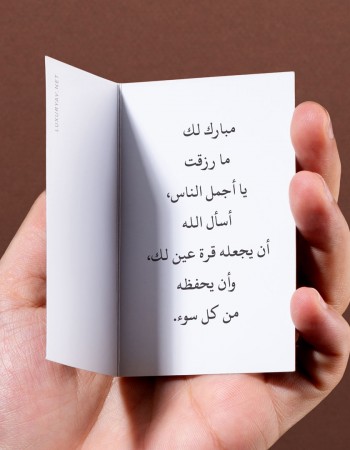 مبارك لك
ما رزقت
يا أجمل الناس،
أسأل الله
أن يجعله قرة عين لك،
وأن يحفظه
من كل سوء.
LUXURYAY.NET